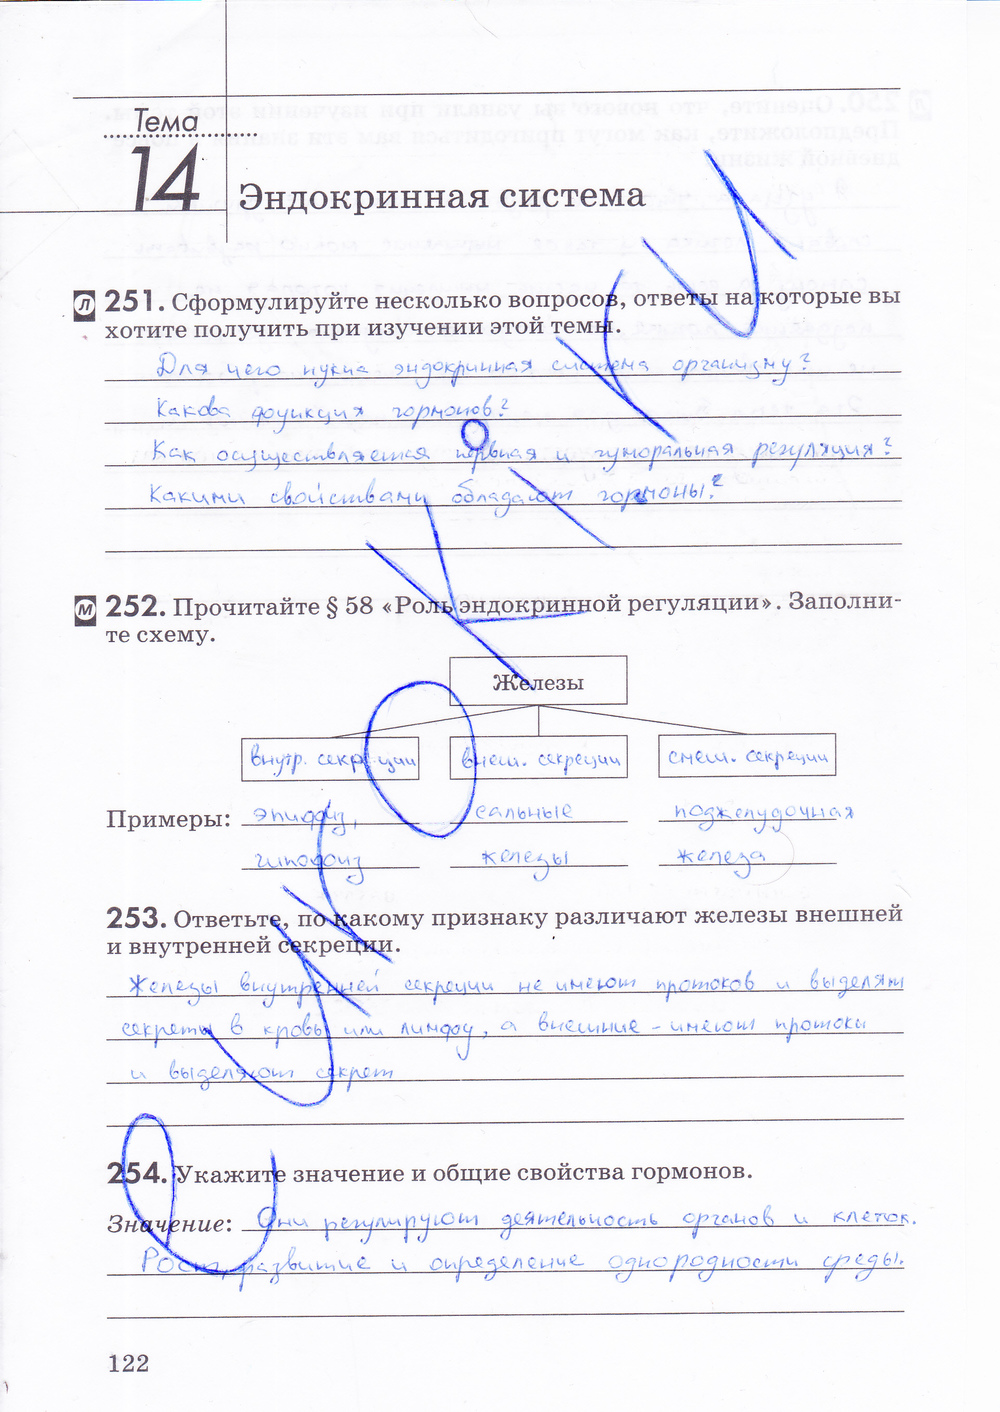 Тема
14
Эндокринная система
Л 251. Сформулируйте несколько вопросов, ответы на которые вы
хотите получить при изучении этой темы.
Для чего нужна эндокринная система организму?
Какова функция гормонов?
Как осуществляется нервная и гуморальная регуляция?
Какими свойствами обладают гормоны?
М 252. Прочитайте § 58 «Роль эндокринной регуляции». Заполни-
те схему.
Железы
внутр. секреции внеш. секреции смеш. секреции
Примеры: эпифиз, сальные поджелудочная
гипофиз железы железа
253. Ответьте, по какому признаку различают железы внешней
и внутренней секреции.
Железы внутренней секреции не имеют протоков и выделяют
секреты в кровь или лимфу, а внешние - имеют протоки
и выделяют секрет
254. Укажите значение и общие свойства гормонов.
Значение: Они регулируют деятельность органов и клеток.
Рост, развитие и определение однородности среды.
122